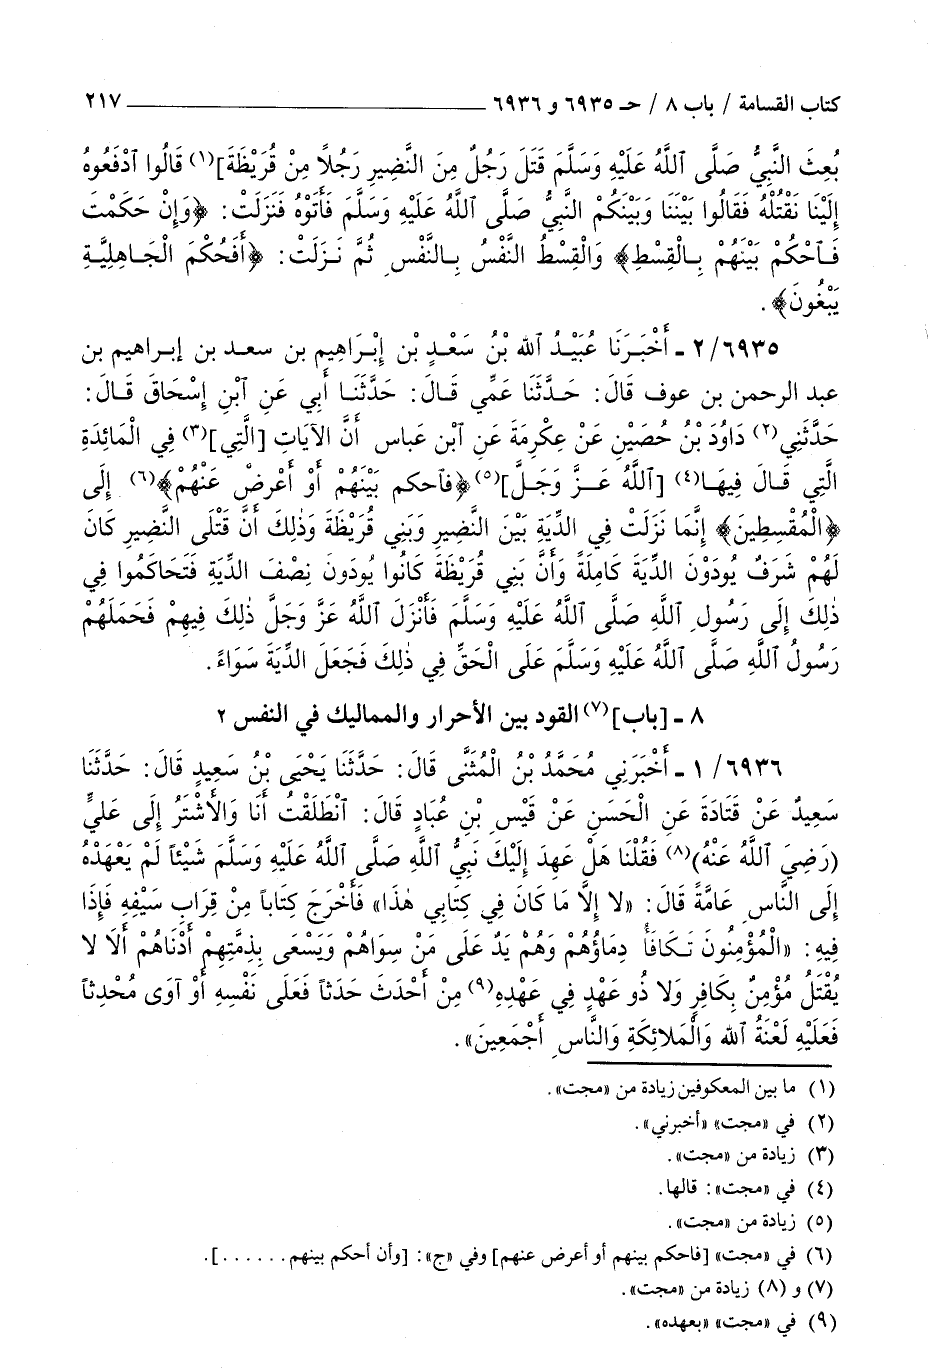 كتاب القسامة / باب ٨ / حـ ٦٩٣٥ و ٦٩٣٦ ــــــــــــــــــــ ٢١٧
بُعِثَ النَّبِيُّ صَلَّى ٱللَّهُ عَلَيْهِ وَسَلَّمَ قَتَلَ رَجُلٌ مِنَ النَّضِيرِ رَجُلاً مِنْ قُرَيْظَةَ](١) قَالُوا ٱدْفَعُوهُ
إِلَيْنَا نَقْتُلْهُ فَقَالُوا بَيْنَنَا وَبَيْنَكُمْ النَّبِيُّ صَلَّى ٱللَّهُ عَلَيْهِ وَسَلَّمَ فَأَتَوْهُ فَنَزَلَتْ: ﴿وَإِنْ حَكَمْتَ
فَٱحْكُمْ بَيْنَهُمْ بِالْقِسْطِ﴾ وَالْقِسْطُ النَّفْسُ بِالنَّفْسِ ثُمَّ نَزَلَتْ: ﴿أَفَحُكْمَ الْجَاهِلِيَّةِ
يَبْغُونَ﴾.
٢/٦٩٣٥ ـ أَخْبَرَنَا عُبَيْدُ ٱلله بْنُ سَعْدٍ بْنِ إِبْرَاهِيمَ بن سعد بن إبراهيم بن
عبد الرحمن بن عوف قَالَ: حَدَّثَنَا عَمِّي قَالَ: حَدَّثَنَا أَبِي عَنِ ٱبْنِ إِسْحَاقَ قَالَ:
حَدَّثَنِي(٢) دَاوُدَ بْنُ حُصَيْنٍ عَنْ عِكْرِمَةَ عَنِ ٱبْنِ عباس أَنَّ الآيَاتِ [الَّتِي](٣) فِي الْمَائِدَةِ
الَّتِي قَالَ فِيهَا(٤) [ٱللَّهُ عَزَّ وَجَلَّ](٥) ﴿فٱحكم بَيْنَهُمْ أَوْ أَعْرِضْ عَنْهُمْ﴾(٦) إِلَى
﴿الْمُقْسِطِينَ﴾ إِنَّمَا نَزَلَتْ فِي الدِّيَةِ بَيْنَ النَّضِيرِ وَبَنِي قُرَيْظَةَ وَذٰلِكَ أَنَّ قَتْلَى النَّضِيرِ كَانَ
لَهُمْ شَرَفٌ يُودَوْنَ الدِّيَةَ كَامِلَةً وَأَنَّ بَنِي قُرَيْظَةَ كَانُوا يُودَونَ نِصْفَ الدِّيَةِ فَتَحَاكَمُوا فِي
ذٰلِكَ إِلَى رَسُولِ ٱللَّهِ صَلَّى ٱللَّهُ عَلَيْهِ وَسَلَّمَ فَأَنْزَلَ ٱللَّهُ عَزَّ وَجَلَّ ذٰلِكَ فِيهِمْ فَحَمَلَهُمْ
رَسُولُ ٱللَّهِ صَلَّى ٱللَّهُ عَلَيْهِ وَسَلَّمَ عَلَى الْحَقِّ فِي ذٰلِكَ فَجَعَلَ الدِّيَةَ سَوَاءً.
٨ ـ [باب](٧) القود بين الأحرار والمماليك في النفس ٢
١/٦٩٣٦ ـ أَخْبَرَنِي مُحَمَّدُ بْنُ الْمُثَنَّى قَالَ: حَدَّثَنَا يَحْيَى بْنُ سَعِيدٍ قَالَ: حَدَّثَنَا
سَعِيدٌ عَنْ قَتَادَةَ عَنِ الْحَسَنِ عَنْ قَيْسِ بْنِ عُبَادٍ قَالَ: ٱنْطَلَقْتُ أَنَا وَالأَشْتَرُ إِلَى عَلَيٍّ
(رَضِيَ ٱللَّهُ عَنْهُ)(٨) فَقُلْنَا هَلْ عَهِدَ إِلَيْكَ نَبِيُّ ٱللَّهِ صَلَّى ٱللَّهُ عَلَيْهِ وَسَلَّمَ شَيْئاً لَمْ يَعْهَدْهُ
إِلَى النَّاسِ عَامَّةً قَالَ: «لا إِلَّا مَا كَانَ فِي كِتَابِي هٰذَا» فَأَخْرَجَ كِتَاباً مِنْ قِرَابِ سَيْفِهِ فَإِذَا
فِيهِ: «الْمُؤْمِنُونَ تَكَافَأُ دِمَاؤُهُمْ وَهُمْ يَدٌ عَلَى مَنْ سِوَاهُمْ وَيَسْعَى بِذِمَّتِهِمْ أَدْنَاهُمْ أَلَا لا
يُقْتَلُ مُؤْمِنٌ بِكَافِرٍ وَلا ذُو عَهْدٍ فِي عَهْدِهِ(٩) مِنْ أَحْدَثَ حَدَثاً فَعَلَى نَفْسِهِ أَوْ آوَى مُحْدِثاً
فَعَلَيْهِ لَعْنَةُ ٱلله وَالْمَلائِكَةِ وَالنَّاسِ أَجْمَعِينَ».
(١) ما بين المعكوفين زيادة من «مجت».
(٢) في «مجت» «أخبرني».
(٣) زيادة من «مجت».
(٤) في «مجت»: قالها.
(٥) زيادة من «مجت».
(٦) في «مجت» [فاحكم بينهم أو أعرض عنهم] وفي «ج»: [وأن أحكم بينهم . . . . . .].
(٧) و (٨) زيادة من «مجت».
(٩) في «مجت» «بعهده».